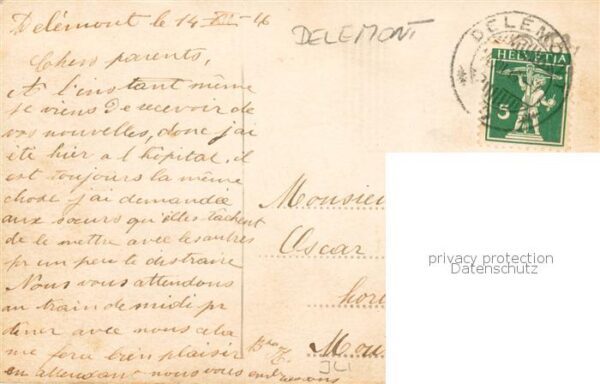 Delémont le 14 XII - 16
DELEMONT
DELEMO
HELVETIA
5
Chers parents,
A l'instant même
je viens de recevoir de
vos nouvelles, donc j'ai
été hier a l'hôpital, il
est toujours la même
chose j'ai demandée
aux sœurs qu'elles tâchent
de le mettre avec les autres
pr un peu le distraire
Nous vous attendons
au train de midi pr
diner avec nous cela
me fera bien plaisir
en attendant nous vous embrassons
Monsieur
Oscar
hor
Mou
privacy protection
Datenschutz